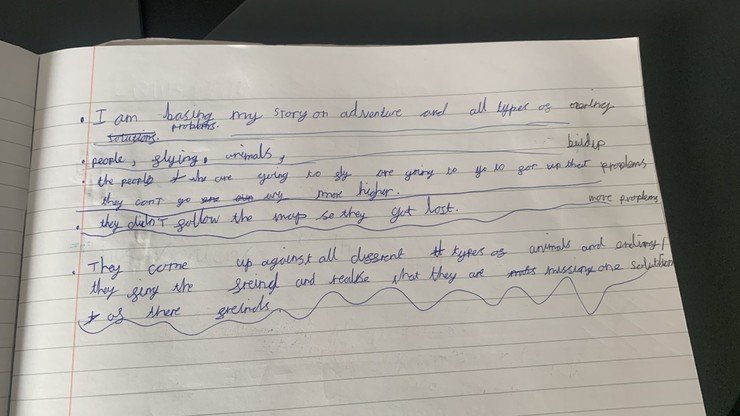 • I am basing my story on adventure and all types of
solutions. problems.
• people, flying, animals, buildup
• the people the are going to fly are going to go to far up that problems
they can't go more higher.
• they didn't follow the map so they got lost. more problems
• They come up against all different types of animals and ending/
they fing the freind and realise that they are missing one solution
of there freinds